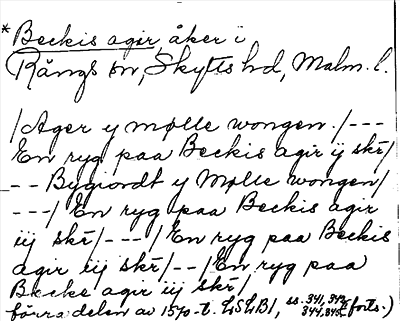 * Beckis agir, åker i
Rängs sn, Skytts hd, Malm. l.
/Ager y mølle wongen./---
En ryg paa Beckis agir ij skr/
-- Bygiordt y Mølle wongen/
---/ En ryg paa Beckis agir
iij skr/---/ En ryg paa Beckis
agir iij skr/--/En ryg paa
Becke agir iij skr/
förra delen av 1570-t. LSLB1, ss. 341, 342,
344, 345. (forts.)